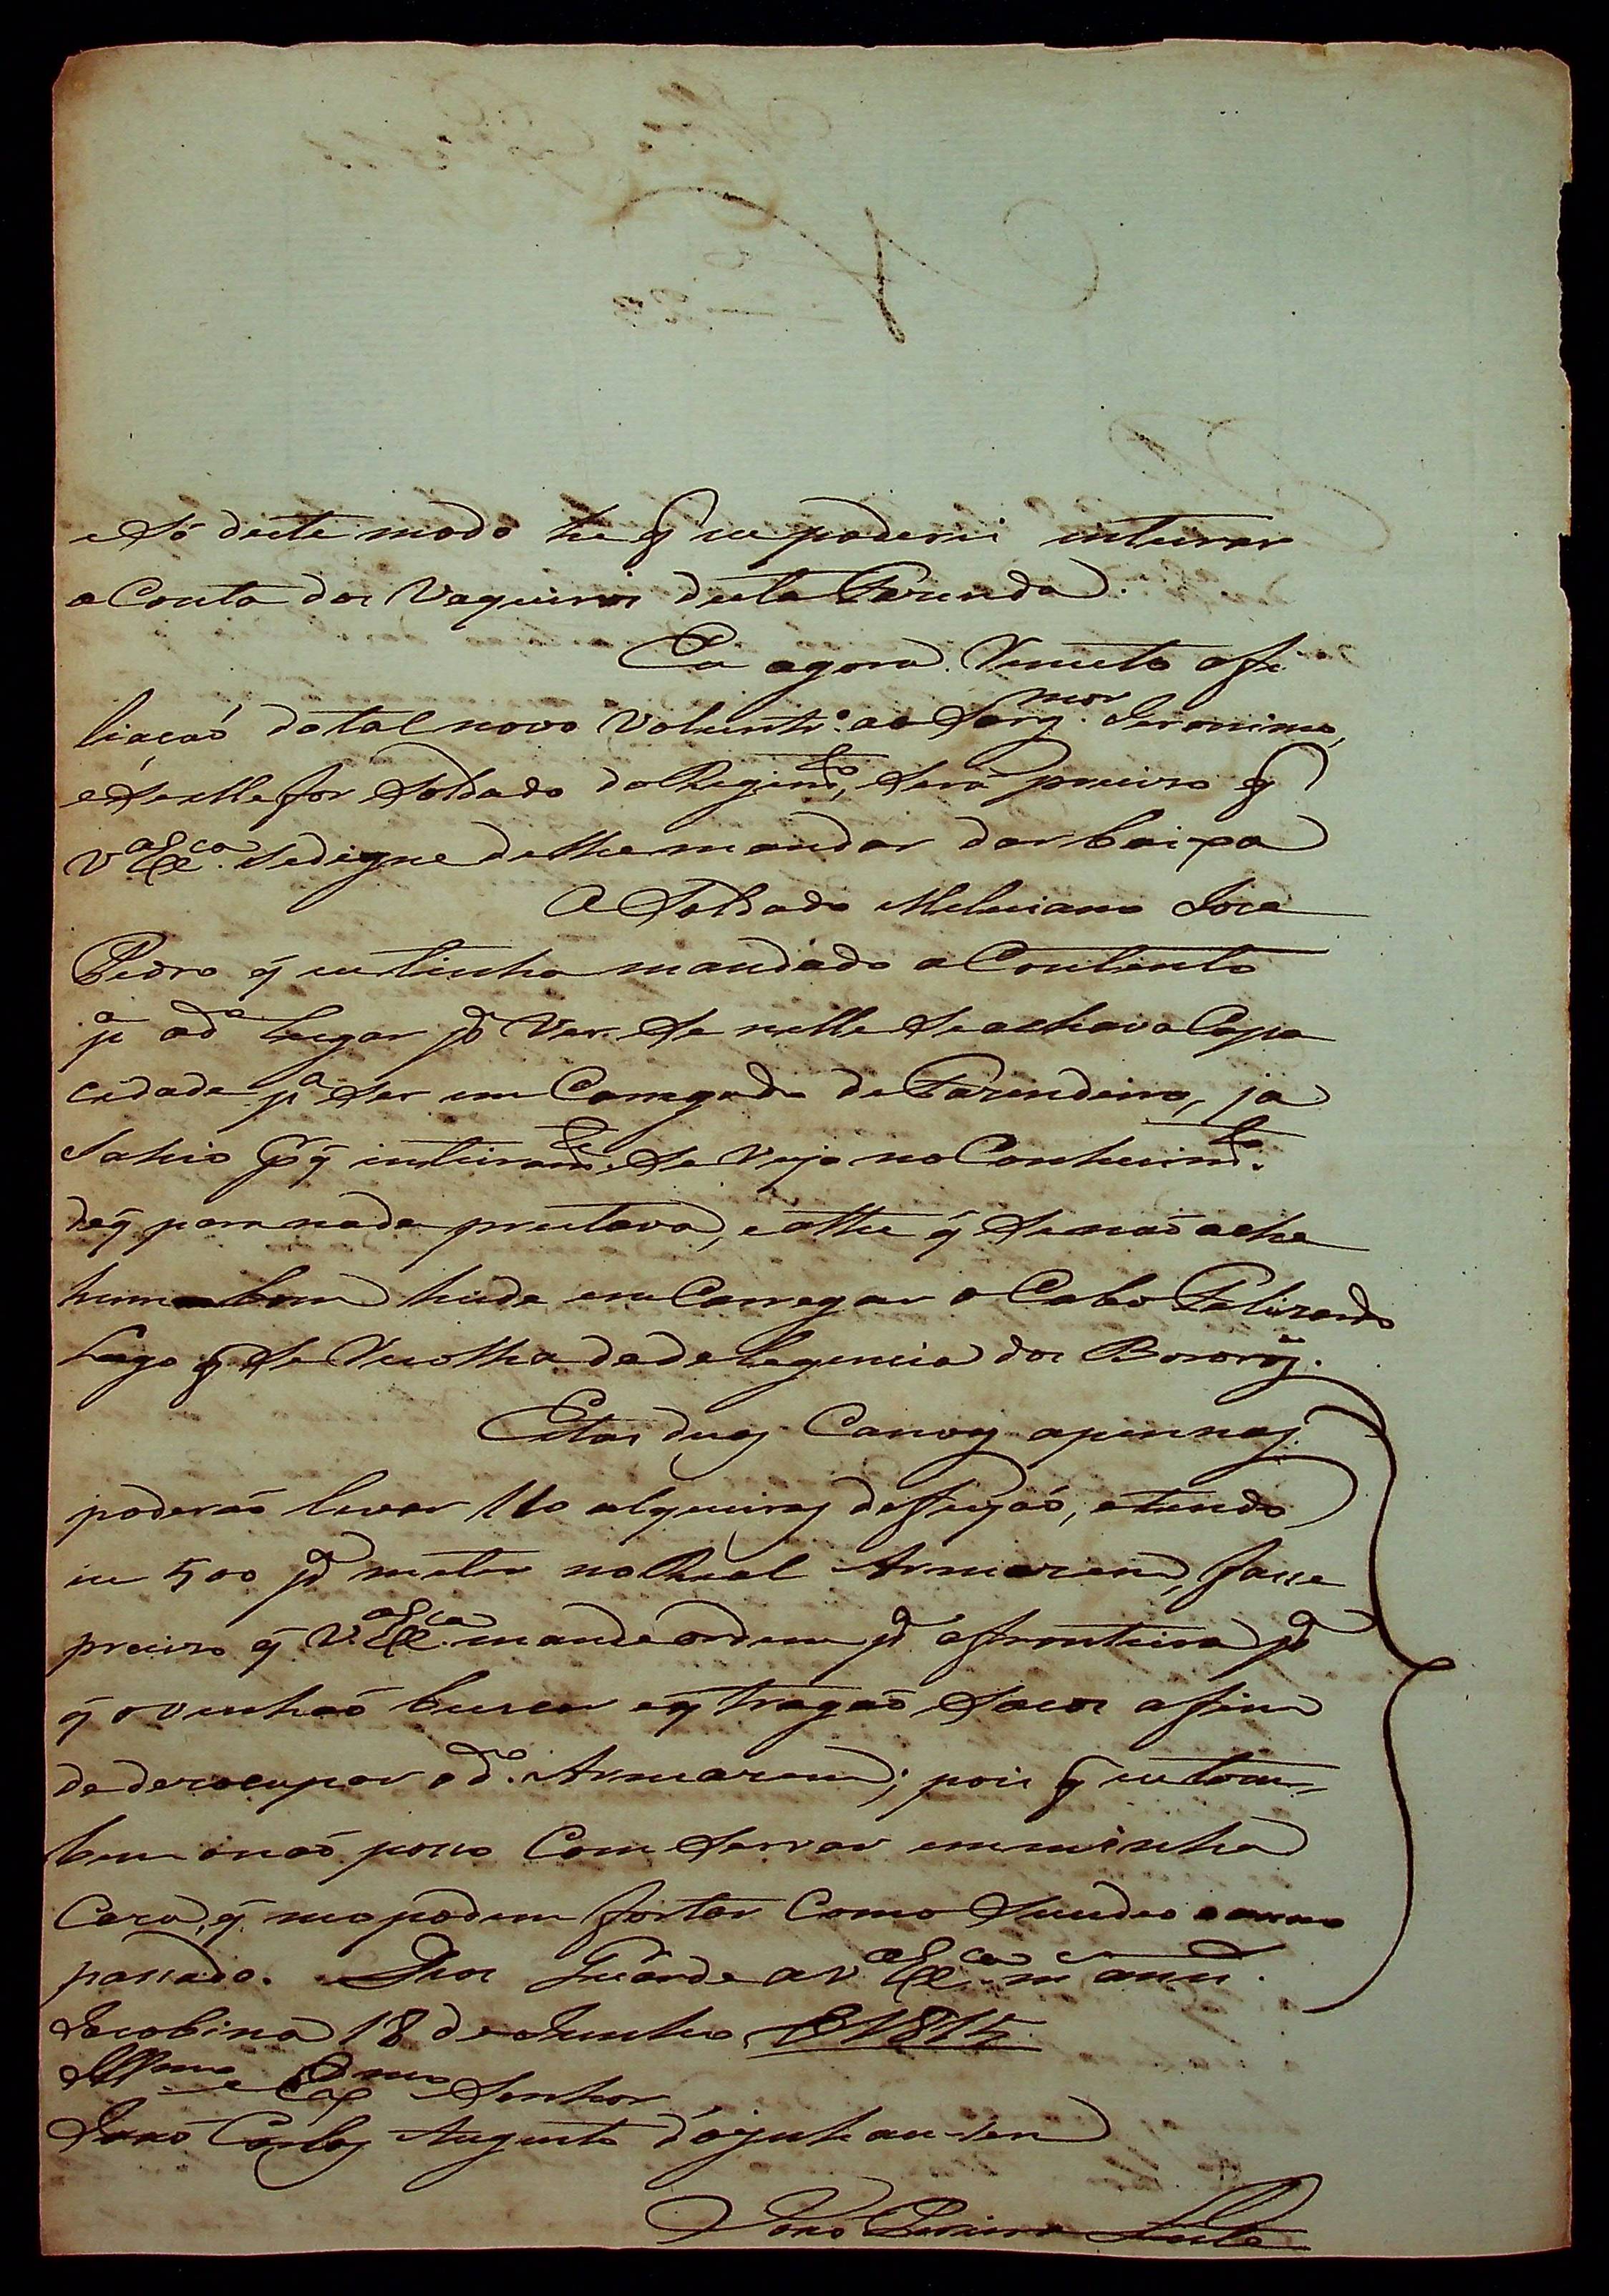 e Só deste modo he q̃ eu poderei inteirar
a Conta dos Vaqueiros desta Fazenda.
Eu agora Remeto a fi
liacaó do tal novo Volunt.º ao Sarg.mor Jeronimo,
e Se elle for Soldado do Regim.to, Será preciso q̃
V.a Ex.ca Se digne de lhe mandar dar baixa
O Soldado Meliciano Jose
Pedro q̃ eu tinha mandádo a Contento
p.a o d.o Lugar p.a Ver Se nelle Se achava Capa
cidade p.a Ser em Carregado de Fazendeiro, ja
Sahio p.r q̃ inteiram.te Se veyo no Conhecim.to
de q̃ para nada prestava, e athe q̃ Se naõ ache
hum bom hade em Carregar o Cabo Felizardo
Logo q̃ Se Recolha da delegencia dos Bororós.
Estas duas Canoas apennas
poderaõ levar 110 alqueires de feijaó, e tendo
eu 500 p.a meter no Real Armazem, fasse
preciso q̃ V.a Ex.ca mande ordem p.a a fronteira p.a
q̃ o venhaõ buscar e q̃ tragaõ Sacos a fim
de dezocupar o d.o Armazem; pois q̃ eu tam
bem o naõ posso Com Servar em minha
Caza, q̃ mo podem fortar Como Sucedeo o anno
passado. Deos Guarde a V.a Ex.ca m.s ann.s
Jacobina 18 de Junho D 1815
Ill.mo e Ex.mo Senhor
Joaõ Carlos Augusto d'oyenhausen
Joaõ Pereira Leite